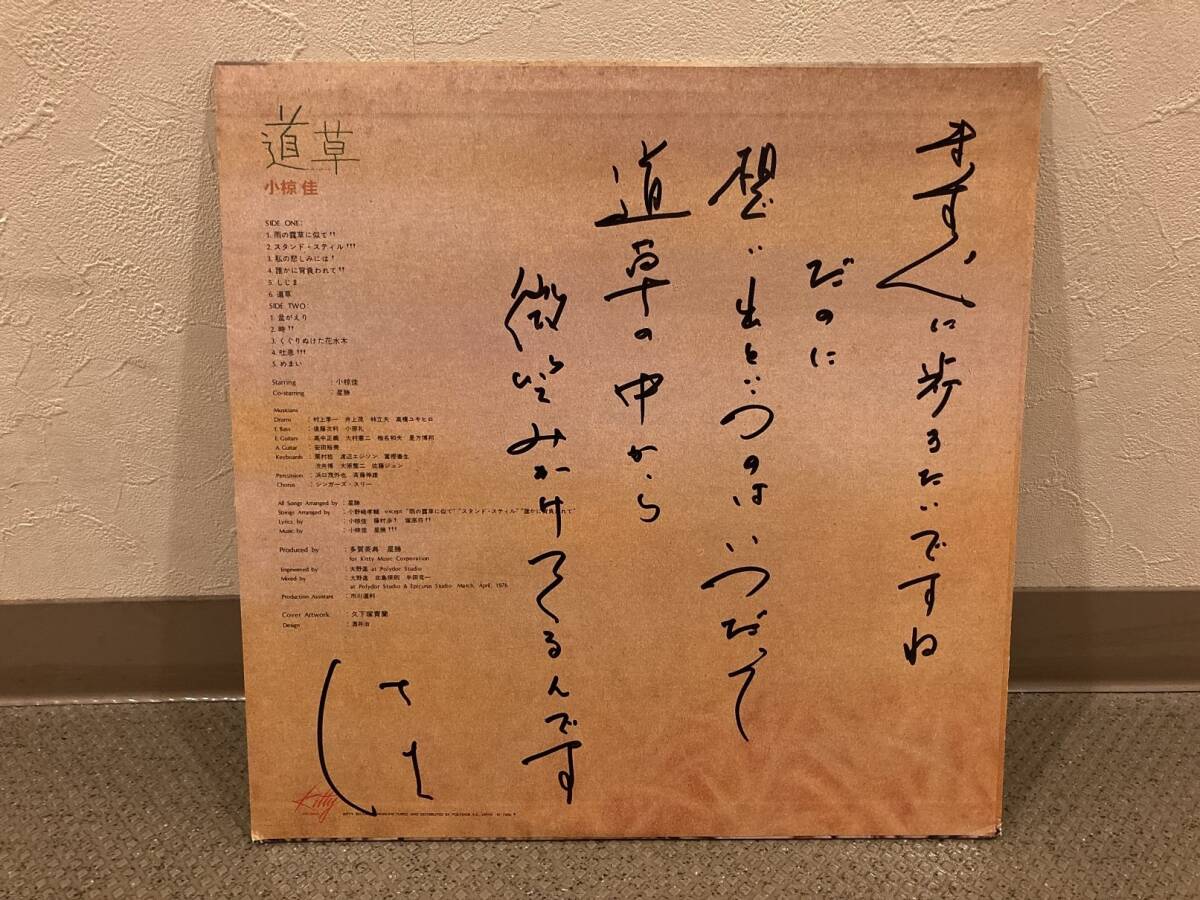 道草
小椋 佳
SIDE ONE:
1. 雨の露草に似て††
2. スタンド・スティル†††
3. 私の悲しみには†
4. 誰かに背負われて††
5. しじま
6. 道草
SIDE TWO:
1. 盆がえり
2. 時††
3. くぐりぬけた花水木
4. 吐息†††
5. めまい
Starring : 小椋佳
Co-starring : 星勝
Musicians
Drums : 村上秀一 井上茂 林立夫 高橋ユキヒロ
E. Bass : 後藤次利 小原礼
E. Guitars : 高中正義 大村憲二 椎名和夫 是方博邦
A. Guitar : 安田裕美
Keyboards : 栗林稔 渡辺エジソン 富樫春生
大原繁二 佐藤ジュン
Percussion : 浜口茂外也 斉藤伸雄
Chorus : シンガーズ・スリー
All Songs Arranged by : 星勝
Strings Arranged by : 小野崎孝輔 except "雨の露草に似て" "スタンド・スティル" "誰かに背負われて"
Lyrics by : 小椋佳
Music by : 小椋佳 星勝†††
Produced by : 多賀英典 星勝
for Kitty Music Corporation
Engineered by : 大野進 at Polydor Studio
Mixed by : 大野進
at Polydor Studio & Epicurus Studio March, April, 1976
Production Assistant : 市川道利
Cover Artwork : 久下塚貴蘭
Design : 酒井治
まっすぐに歩きたいですね
だのに
想い出というのはいつだって
道草の中から
微笑みかけてくるんです
Kitty